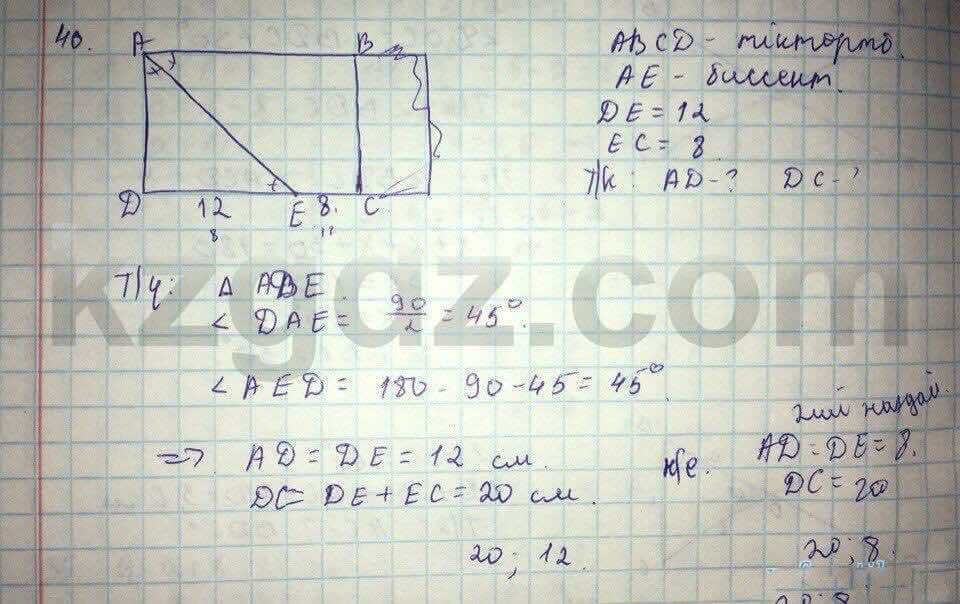 40.
A B
D 12 E 8. C
8 12
ABCD - тіктөртб.
AE - биссект.
DE = 12
EC = 8
Т/к: AD-? DC-?
Т/ч: Δ ADE
< DAE = 90/2 = 45°.
< AED = 180 - 90 - 45 = 45°
=> AD = DE = 12 см.
DC = DE + EC = 20 см.
20; 12.
ж/е.
AD = DE = 8.
DC = 20
20; 8.
20; 8
kzgdz.com